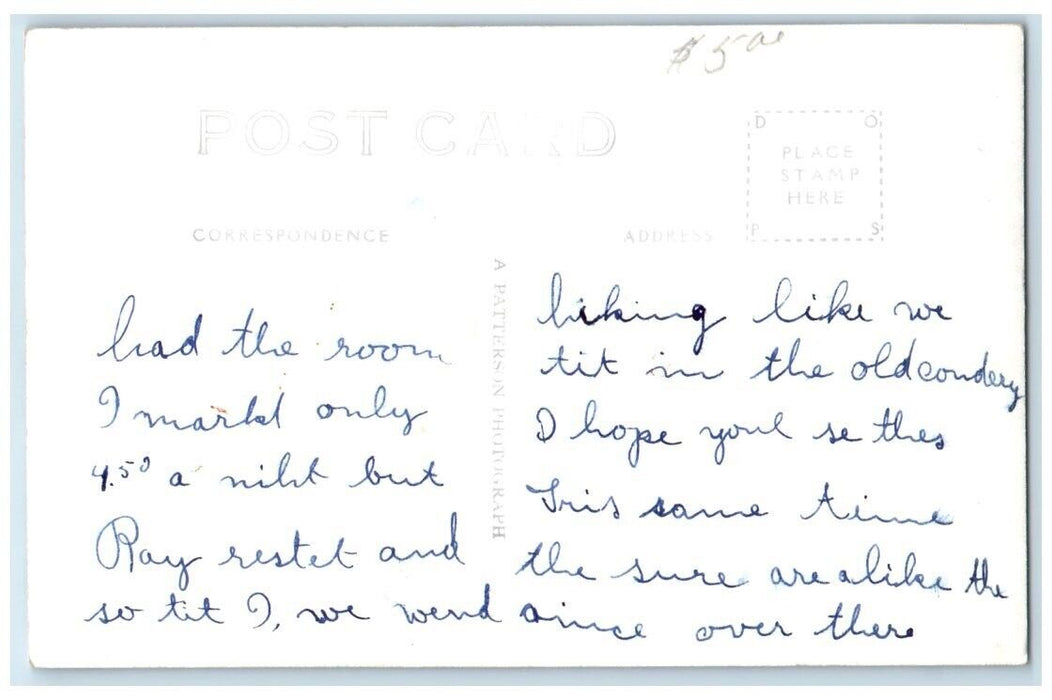 $5 00
POST CARD
D O
PLACE
STAMP
HERE
P S
CORRESPONDENCE
ADDRESS
A PATTERSON PHOTOGRAPH
had the room
I markt only
4.50 a niht but
Ray restet and
so tit I, we wend
hiking like we
tit in the old condery
I hope youl se thes
Tris same time
the sure are alike the
over there